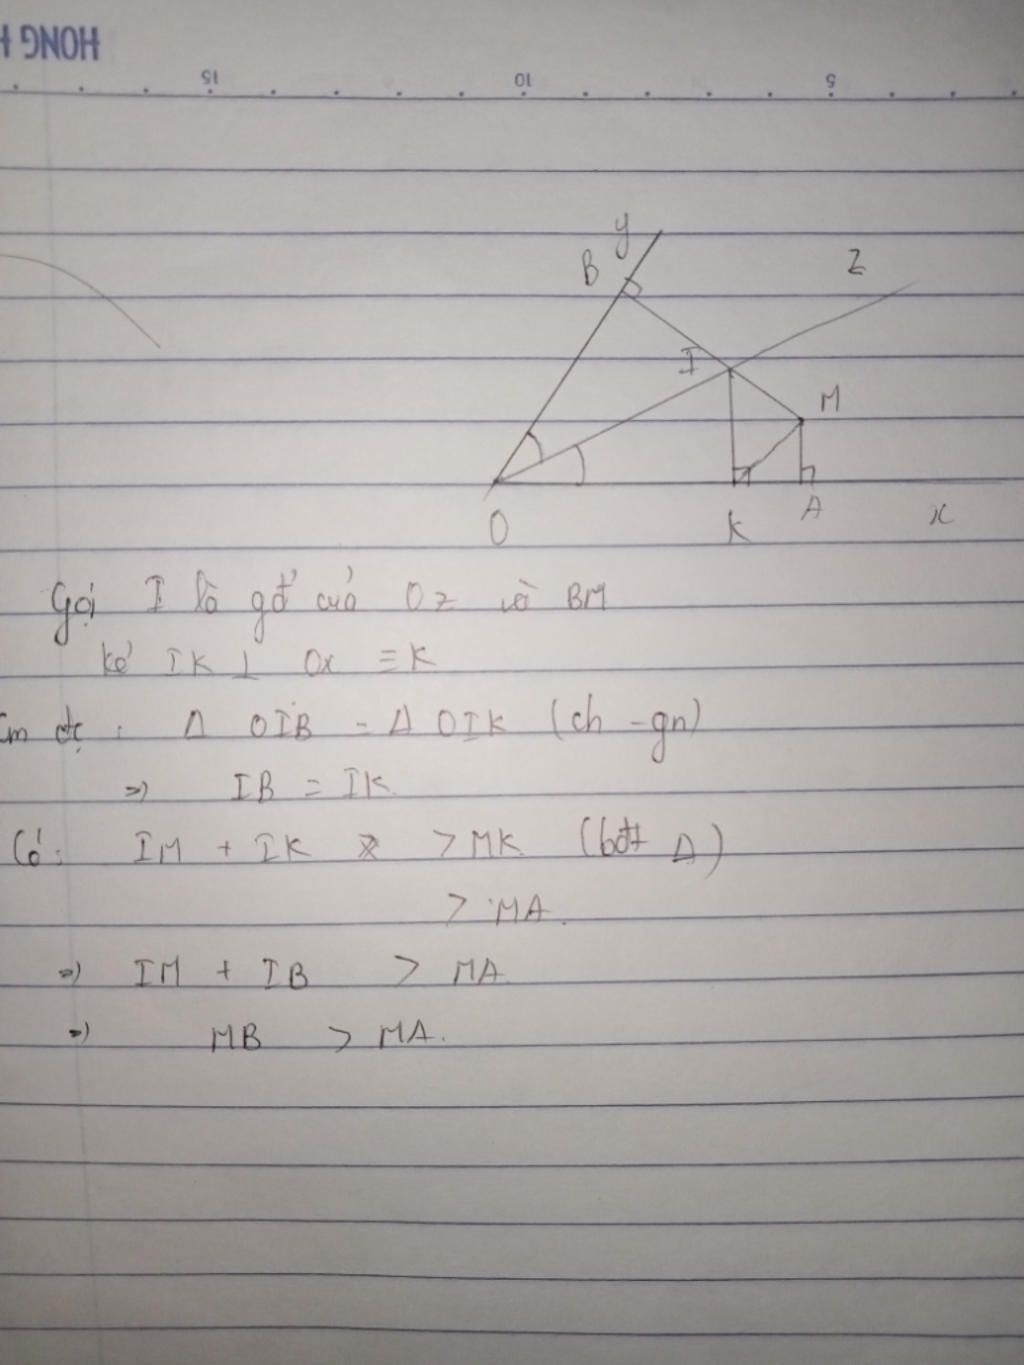 HONG H
15 10 5
y
B
z
I
M
O K A x
Gọi I là gđ' của Oz và BM
kẻ IK ⊥ Ox ≡ K
Cm đc : Δ OIB = Δ OIK (ch - gn)
=> IB = IK
Có: IM + IK > MK (bđt Δ)
> MA.
=> IM + IB > MA
=> MB > MA.